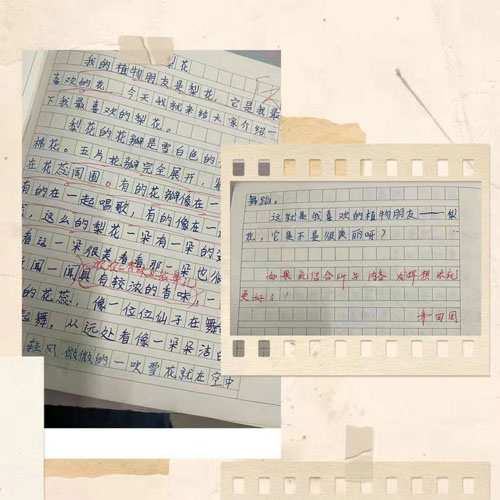 梨花
我的植物朋友是梨花,它是我最
喜欢的花。今天我就来给大家介绍一
下我最喜欢的梨花。
梨花的花瓣是雪白色的
棉花。五片花瓣完全展开,
在花蕊周围。有的花瓣像在一
有的在一起唱歌,有的像在一
这么的梨花一朵有一朵的
看这一朵很美看看那一朵也
闻一闻具有较浓的香味,一
的花蕊,像一位位仙子在舞
起舞,从远处看像一朵朵洁白
轻风微微的一吹雪花就在空中
舞蹈。
这就是我喜欢的植物朋友——梨
花,它是不是很美丽呀?
如果能结合所写内容
更好了!